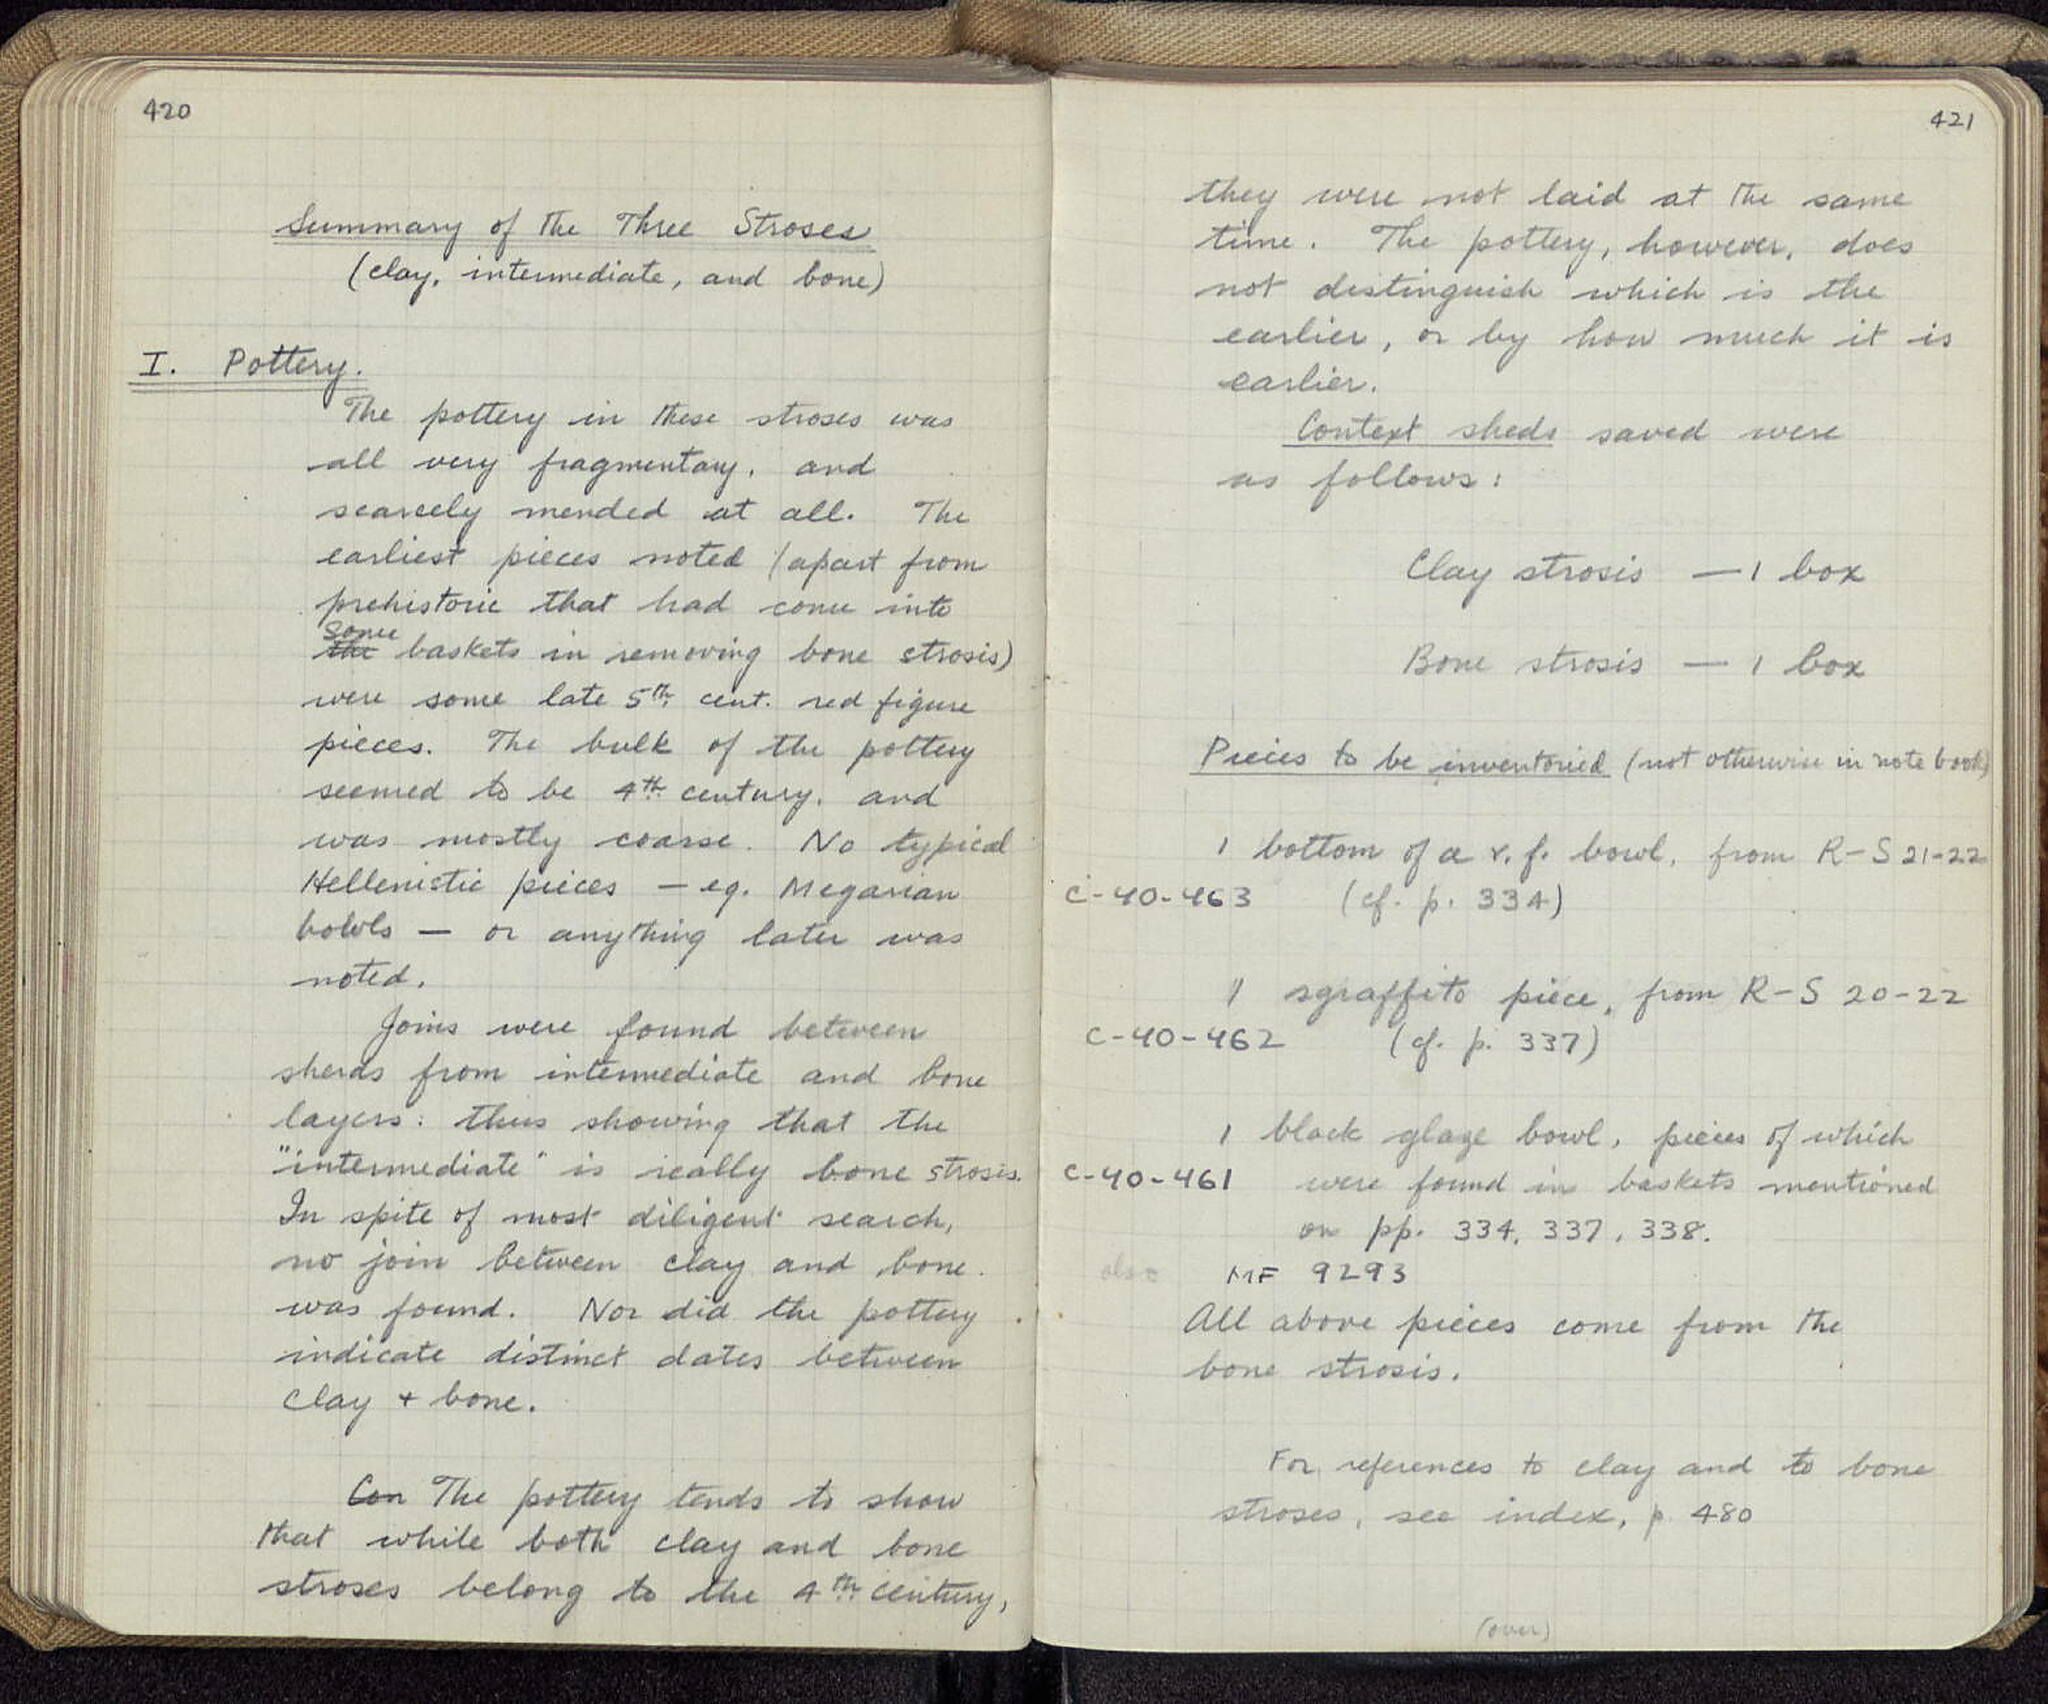 420
Summary of the Three Stroses
(clay, intermediate, and bone)
I. Pottery.
The pottery in these stroses was
all very fragmentary, and
scarcely mended at all. The
earliest pieces noted (apart from
prehistoric that had come into
some
the baskets in removing bone strosis)
were some late 5th cent. red figure
pieces. The bulk of the pottery
seemed to be 4th century, and
was mostly coarse. No typical
Hellenistic pieces — eg. Megarian
bowls — or anything later was
noted.
Joins were found between
sherds from intermediate and bone
layers: thus showing that the
"intermediate" is really bone strosis.
In spite of most diligent search,
no join between clay and bone
was found. Nor did the pottery
indicate distinct dates between
clay + bone.
Con The pottery tends to show
that while both clay and bone
stroses belong to the 4th century,
421
they were not laid at the same
time. The pottery, however, does
not distinguish which is the
earlier, or by how much it is
earlier.
Context sheds saved were
as follows:
Clay strosis — 1 box
Bone strosis — 1 box
Pieces to be inventoried (not otherwise in note book)
1 bottom of a r.f. bowl, from R-S 21-22
C-40-463 (cf. p. 334)
1 sgraffito piece, from R-S 20-22
C-40-462 (cf. p. 337)
1 black glaze bowl, pieces of which
C-40-461 were found in baskets mentioned
on pp. 334, 337, 338.
also MF 9293
All above pieces come from the
bone strosis.
For references to clay and to bone
stroses, see index, p. 480
(over)